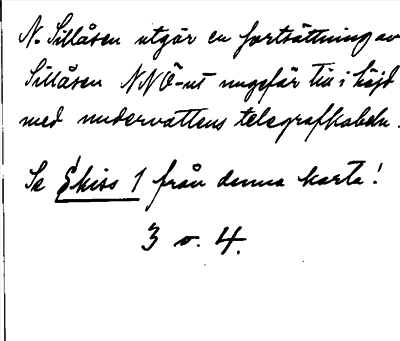 N. Sillåsen utgör en fortsättning av
Sillåsen NNÖ-ut ungefär till i höjd
med undervattens telegrafkabeln.
Se Skiss 1 från denna karta!
3 o. 4.